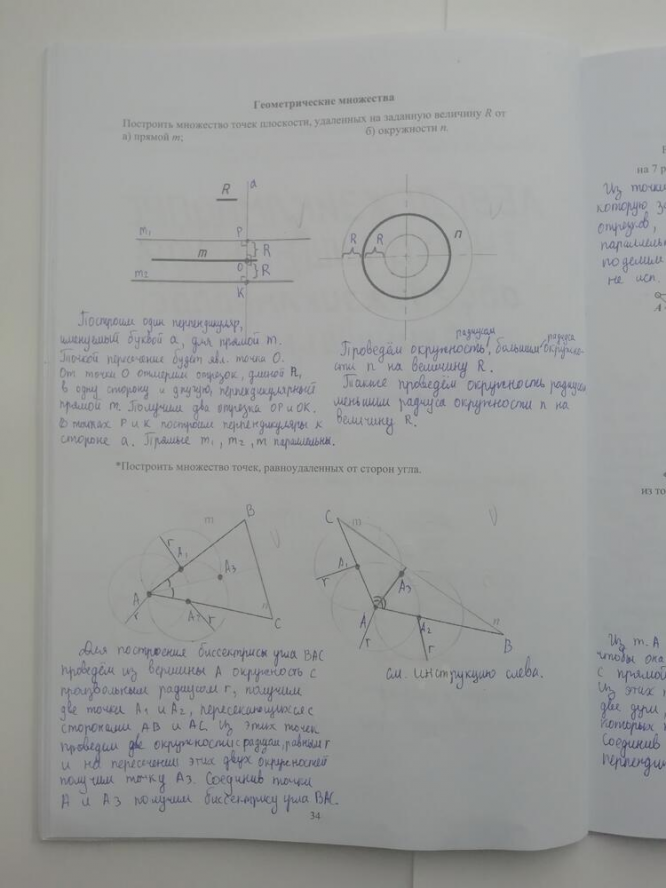 Геометрические множества
Построить множество точек плоскости, удаленных на заданную величину R от
а) прямой m; б) окружности n.
R
a
m₁ P
R
m
O
R
m₂
K
R R n
Построим один перпендикуляр,
именуемый буквой a, для прямой m.
Точкой пересечение будет явл. точка O.
От точки O отмерим отрезок, длиной R,
в одну сторону и другую, перпендикулярные
прямой m. Получим два отрезка OP и OK.
В точках P и K построим перпендикуляры к
стороне a. Прямые m₁, m₂, m параллельны.
радиусом радиуса
Проведём окружность, большим окружно-
сти n на величину R.
Также проведём окружность радиусом
меньшим радиуса окружности n на
величину R.
*Построить множество точек, равноудаленных от сторон угла.
B
m
r
A₁
A₃
A
A₂
n
r r
C
C
m
A₁
r
A₃
A
A₂
n
r r
B
Для построения биссектрисы угла BAC
проведём из вершины A окружность с
произвольным радиусом r, получим
две точки A₁ и A₂, пересекающиеся с
сторонами AB и AC. Из этих точек
проведём две окружности с радиусом, равным r
и на пересечении этих двух окружностей
получим точку A₃. Соединив точки
A и A₃ получим биссектрису угла BAC.
см. инструкцию слева.
34
на 7 р
Из точки
которую за
отрезков,
параллель
поделим
не исп.
A
из то
Из т. A
чтобы ока
с прямой
Из этих т
две дуги,
которых п
Соединив
перпенди